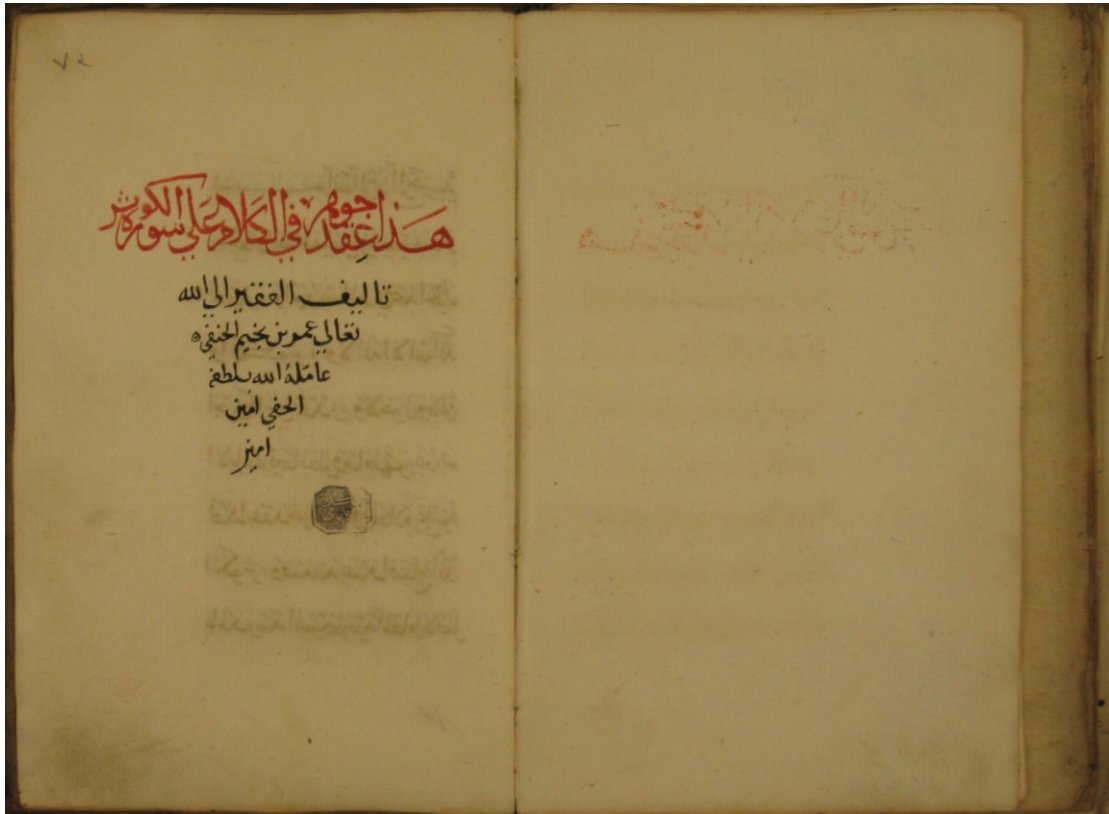 ٧٢
هذا عقد جوهر في الكلام علي سورة الكوثر
تاليف الفقير الي الله
تعالي عمر بن نجيم الحنفي
عامله الله بلطفه
الخفي امين
امين